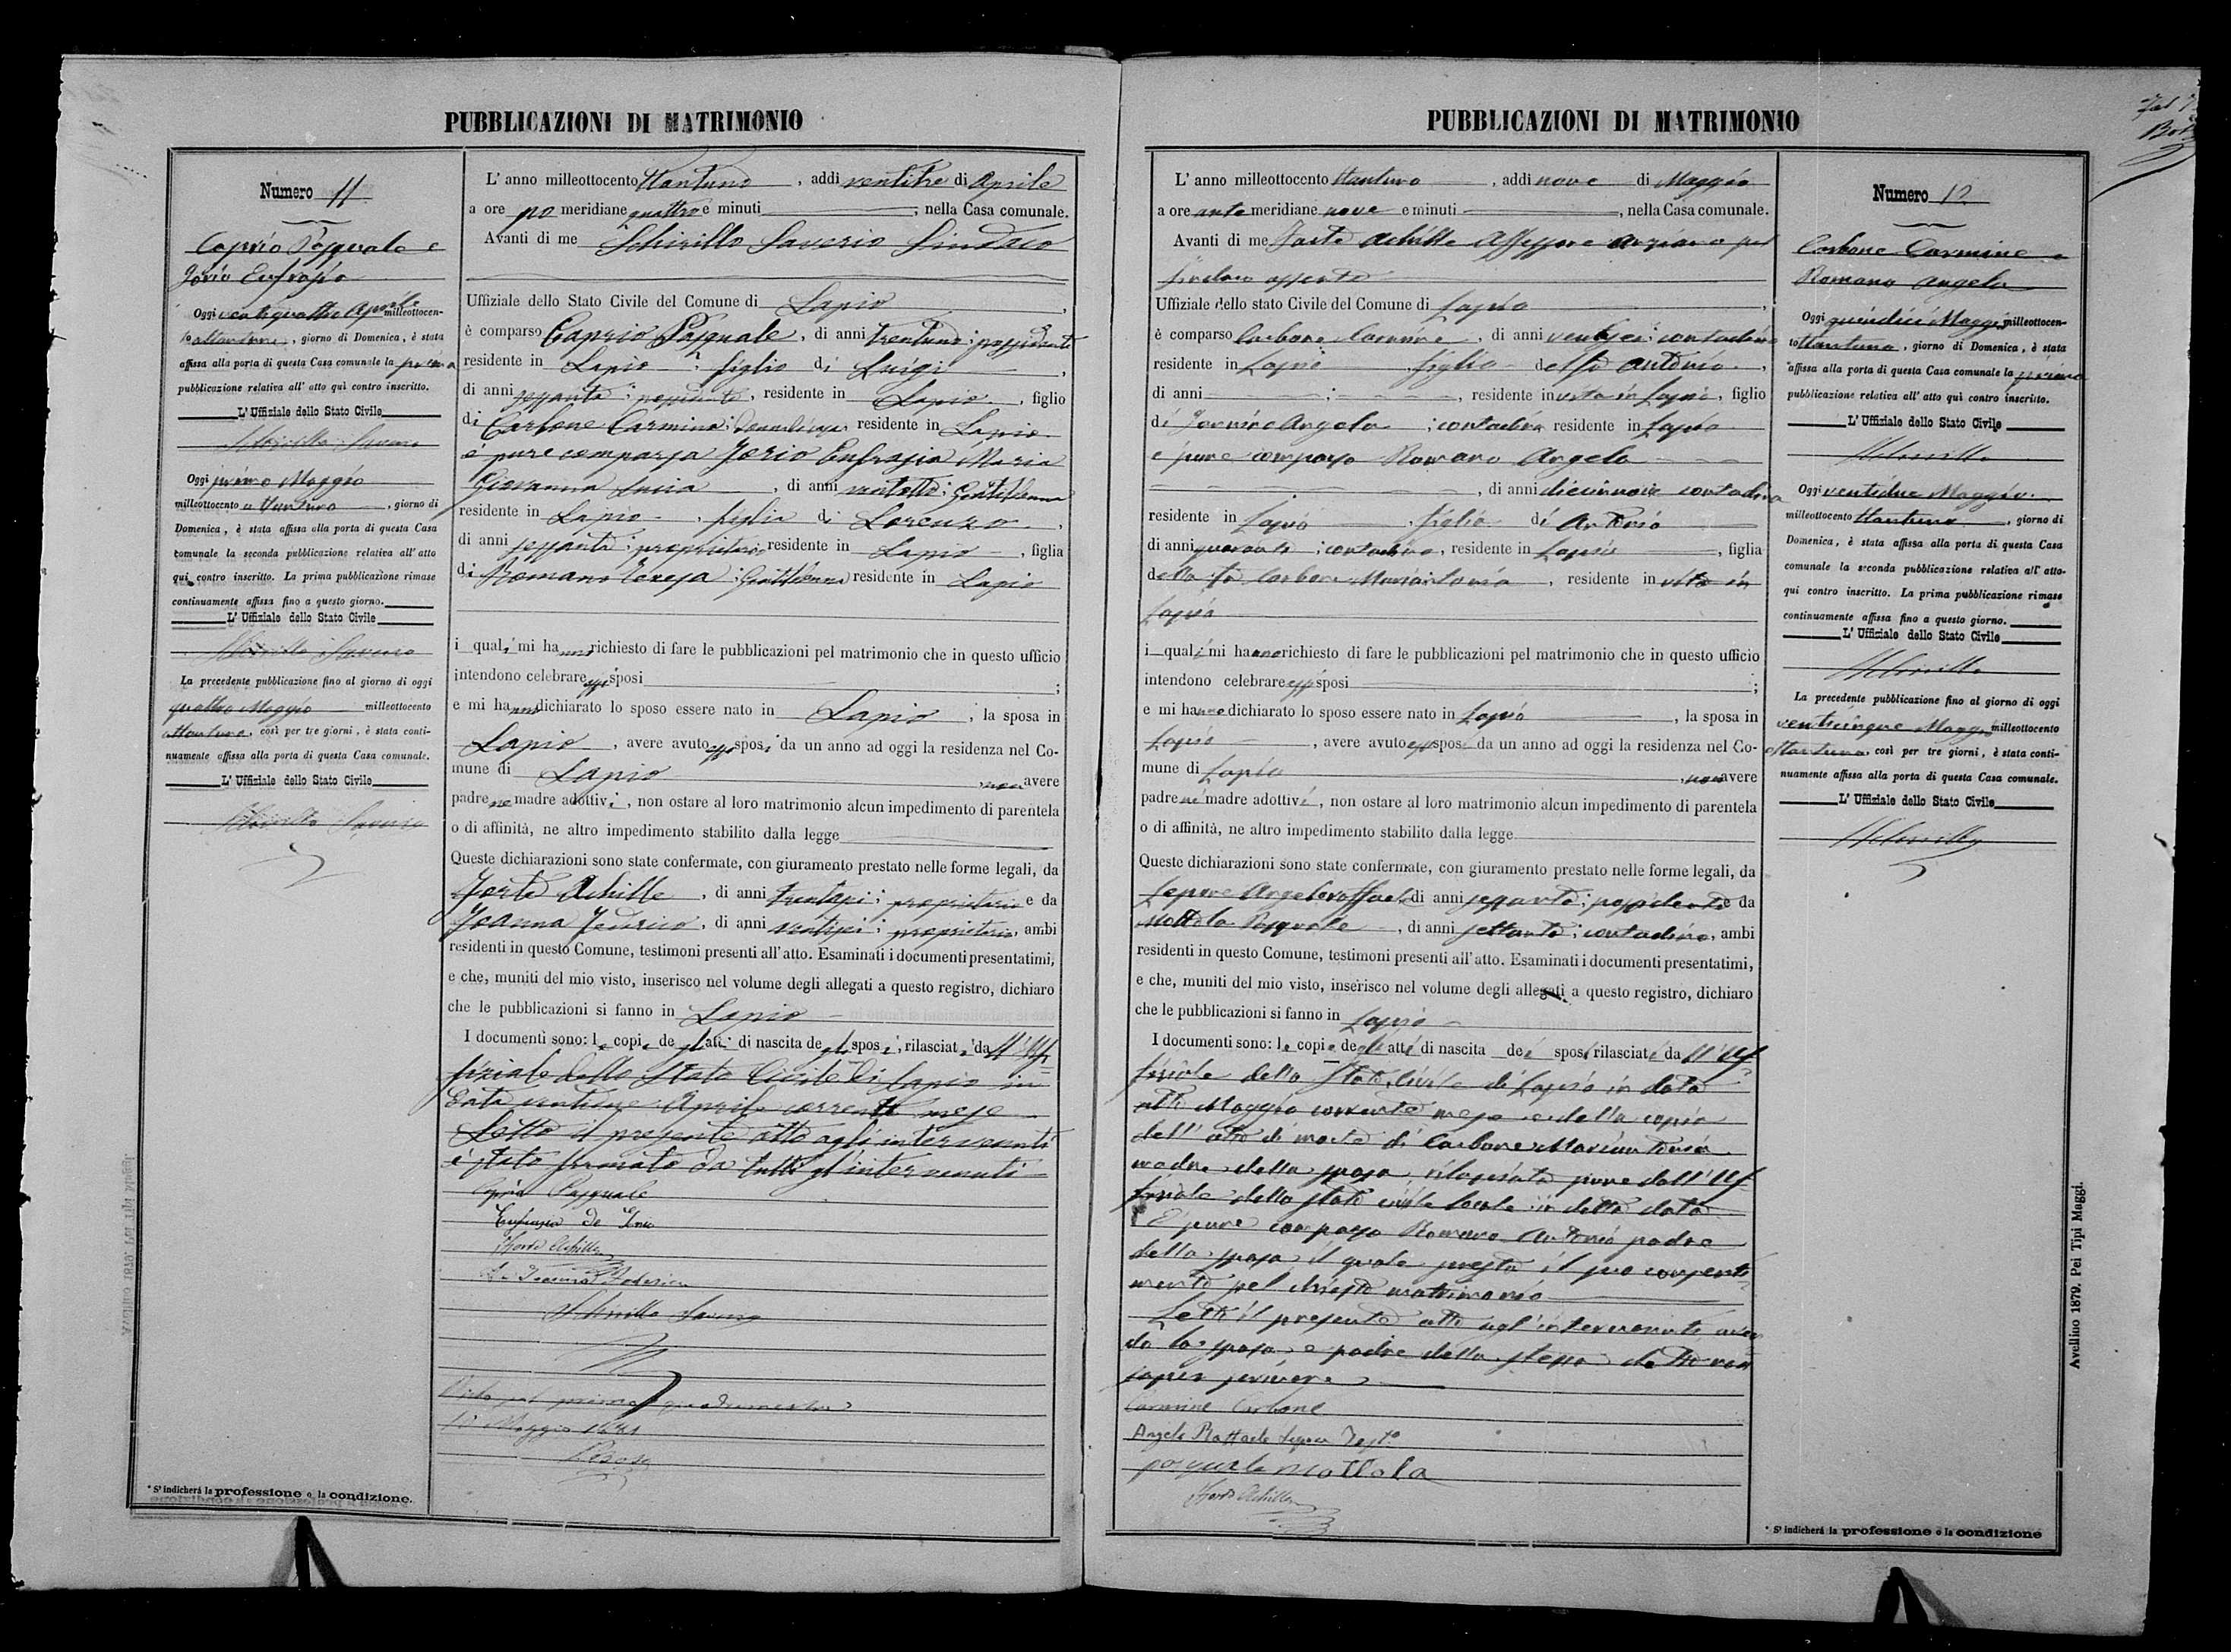 PUBBLICAZIONI DI MATRIMONIO
Numero 11
Caprio Pasquale e
Jorio Eufrasia
Oggi ventiquattro Aprile milleottocen-
to ottantuno, giorno di Domenica, è stata
affissa alla porta di questa Casa comunale la prima
pubblicazione relativa all' atto quì contro inscritto.
L' Uffiziale dello Stato Civile
Schirillo Saverio
Oggi primo Maggio
milleottocento ottantuno, giorno di
Domenica, è stata affissa alla porta di questa Casa
comunale la seconda pubblicazione relativa all' atto
qui contro inscritto. La prima pubblicazione rimase
continuamente affissa fino a questo giorno.
L' Uffiziale dello Stato Civile
Schirillo Saverio
La precedente pubblicazione fino al giorno di oggi
quattro Maggio milleottocento
ottantuno, così per tre giorni, è stata conti-
nuamente affissa alla porta di questa Casa comunale.
L' Uffiziale dello Stato Civile
Schirillo Saverio
* Si indicherà la professione o la condizione.
L' anno milleottocento ottantuno, addì ventitre di Aprile
a ore po meridiane quattro e minuti ; nella Casa comunale.
Avanti di me Schirillo Saverio Sindaco
Uffiziale dello Stato Civile del Comune di Lapio,
è comparso Caprio Pasquale, di anni trentuno; possidente
residente in Lapio, figlio di Luigi,
di anni sessanta; possidente, residente in Lapio, figlio
di Carbone Carmina; residente in Lapio
è pure comparsa Jorio Eufrasia Maria
Giovanna Lucia, di anni ventotto; Gentildonna
residente in Lapio, figlia di Lorenzo,
di anni sessanta; proprietario residente in Lapio, figlia
di Romano Teresa; Gentildonna residente in Lapio
i quali mi hanno richiesto di fare le pubblicazioni pel matrimonio che in questo ufficio
intendono celebrare essi sposi ;
e mi hanno dichiarato lo sposo essere nato in Lapio, la sposa in
Lapio, avere avuto essi sposi da un anno ad oggi la residenza nel Co-
mune di Lapio, non avere
padre ne madre adottivi, non ostare al loro matrimonio alcun impedimento di parentela
o di affinità, ne altro impedimento stabilito dalla legge
Queste dichiarazioni sono state confermate, con giuramento prestato nelle forme legali, da
Forte Achille, di anni trentasei; proprietario e da
Joanna Federico, di anni ventisei; proprietario, ambi
residenti in questo Comune, testimoni presenti all' atto. Esaminati i documenti presentatimi,
e che, muniti del mio visto, inserisco nel volume degli allegati a questo registro, dichiaro
che le pubblicazioni si fanno in Lapio
I documenti sono: le copie de gli atti di nascita de gli sposi, rilasciate da ll' Uf-
fiziale dello Stato Civile di Lapio in
data Aprile corrente mese
Letto il presente atto agli intervenuti
è stato firmato da tutti gl'intervenuti
Caprio Pasquale
Eufrasia de Jorio
Forte Achille
Federico
Schirillo Saverio
Visto pel primo quadrimestre
10 Maggio 1881
PUBBLICAZIONI DI MATRIMONIO
L' anno milleottocento ottantuno, addì nove di Maggio
a ore ante meridiane nove e minuti , nella Casa comunale.
Avanti di me Forte Achille Assessore anziano pel
Sindaco assente
Uffiziale dello stato Civile del Comune di Lapio,
è comparso Carbone Carmine, di anni ventisei; contadino
residente in Lapio, figlio del fù Antonio,
di anni ; , residente in vita in Lapio, figlio
di Jannino Angela; contadina residente in Lapio
è pure comparsa Romano Angela
, di anni diciannove contadina
residente in Lapio, figlia di Antonio
di anni quaranta; contadino, residente in Lapio, figlia
della fù Carbone Mariantonia, residente in vita in
Lapio
i quali mi hanno richiesto di fare le pubblicazioni pel matrimonio che in questo ufficio
intendono celebrare essi sposi ;
e mi hanno dichiarato lo sposo essere nato in Lapio, la sposa in
Lapio, avere avuto essi sposi da un anno ad oggi la residenza nel Co-
mune di Lapio, non avere
padre nè madre adottivi, non ostare al loro matrimonio alcun impedimento di parentela
o di affinità, ne altro impedimento stabilito dalla legge
Queste dichiarazioni sono state confermate, con giuramento prestato nelle forme legali, da
Lepore Angeloraffaele di anni sessanta; possidente e da
Mottola Pasquale, di anni settanta; contadino, ambi
residenti in questo Comune, testimoni presenti all' atto. Esaminati i documenti presentatimi,
e che, muniti del mio visto, inserisco nel volume degli allegati a questo registro, dichiaro
che le pubblicazioni si fanno in Lapio
I documenti sono: le copie degli atti di nascita dei sposi rilasciate da ll' Uf-
fiziale dello Stato Civile di Lapio in data
otto Maggio corrente mese e della copia
dell' atto di morte di Carbone Mariantonia
madre della sposa, rilasciata pure dall' Uf-
fiziale dello stato civile locale in detta data
È pure comparso Romano Antonio padre
della sposa, il quale presta il suo consenti-
mento pel chiesto matrimonio
Letto il presente atto agl'intervenuti aven-
do la sposa e padre della stessa detto non
saper scrivere
Carmine Carbone
Angelo Raffaele Lepore Test.º
pasquale mottola
Forte Achille
Numero 12
Carbone Carmine e
Romano Angela
Oggi quindici Maggio milleottocen-
to ottantuno, giorno di Domenica, è stata
affissa alla porta di questa Casa comunale la prima
pubblicazione relativa all' atto quì contro inscritto.
L' Uffiziale dello Stato Civile
Schirillo
Oggi ventidue Maggio
milleottocento ottantuno, giorno di
Domenica, è stata affissa alla porta di questa Casa
comunale la seconda pubblicazione relativa all' atto-
qui contro inscritto. La prima pubblicazione rimase
continuamente affissa fino a questo giorno.
L' Uffiziale dello Stato Civile
Schirillo
La precedente pubblicazione fino al giorno di oggi
venticinque Maggio milleottocento
ottantuno, così per tre giorni, è stata conti-
nuamente affissa alla porta di questa Casa comunale.
L' Uffiziale dello Stato Civile
Schirillo
* Si indicherà la professione o la condizione
Avellino 1879. Pei Tipi Maggi.